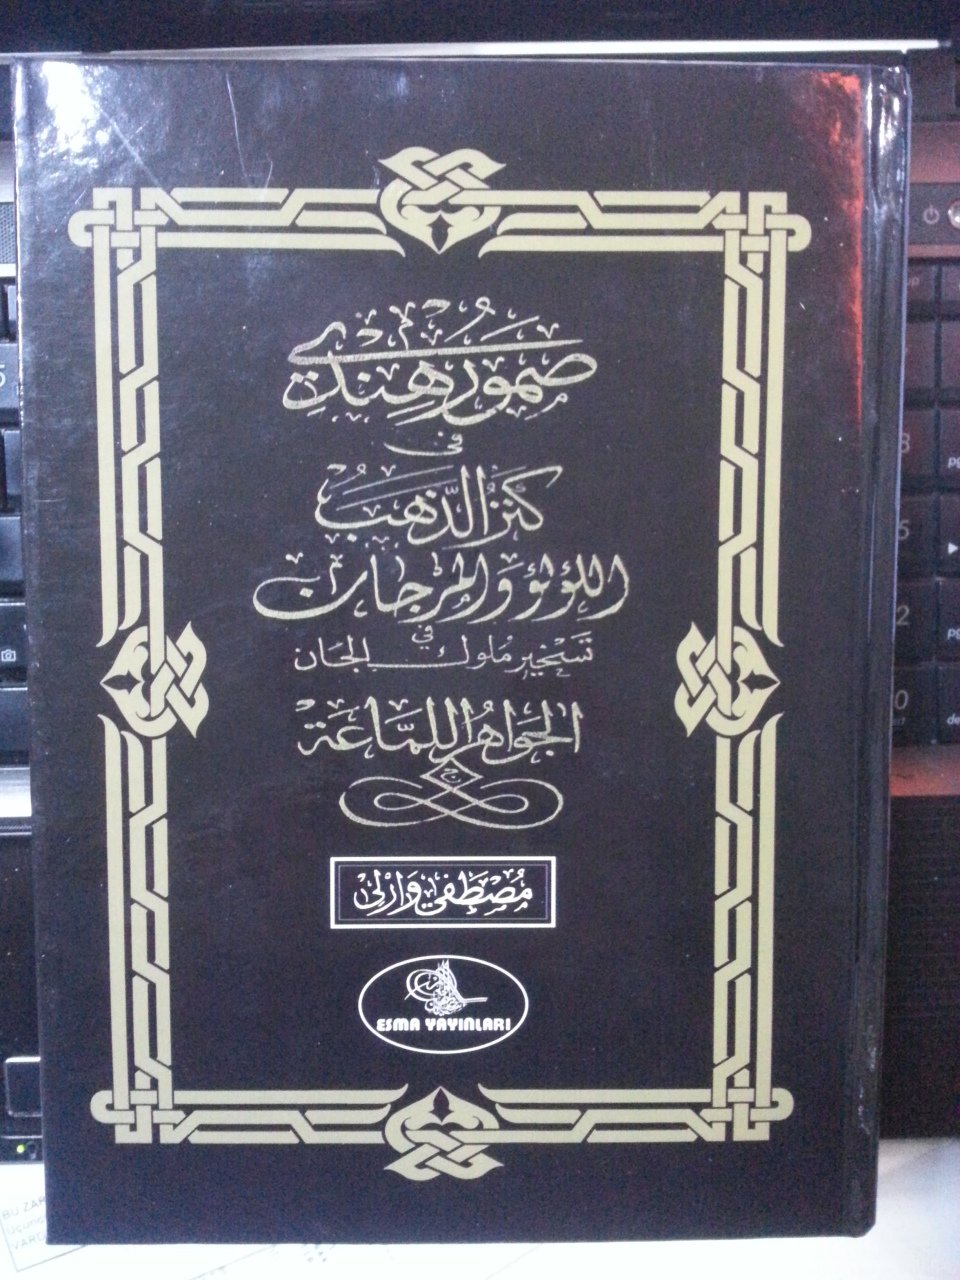 صمور هندي
في
كنز الذهب
اللؤلؤ والمرجان
في
تسخير ملوك الجان
الجواهر اللماعة
ج
مصطفى وارلي
ESMA YAYINLARI
BU ZAR